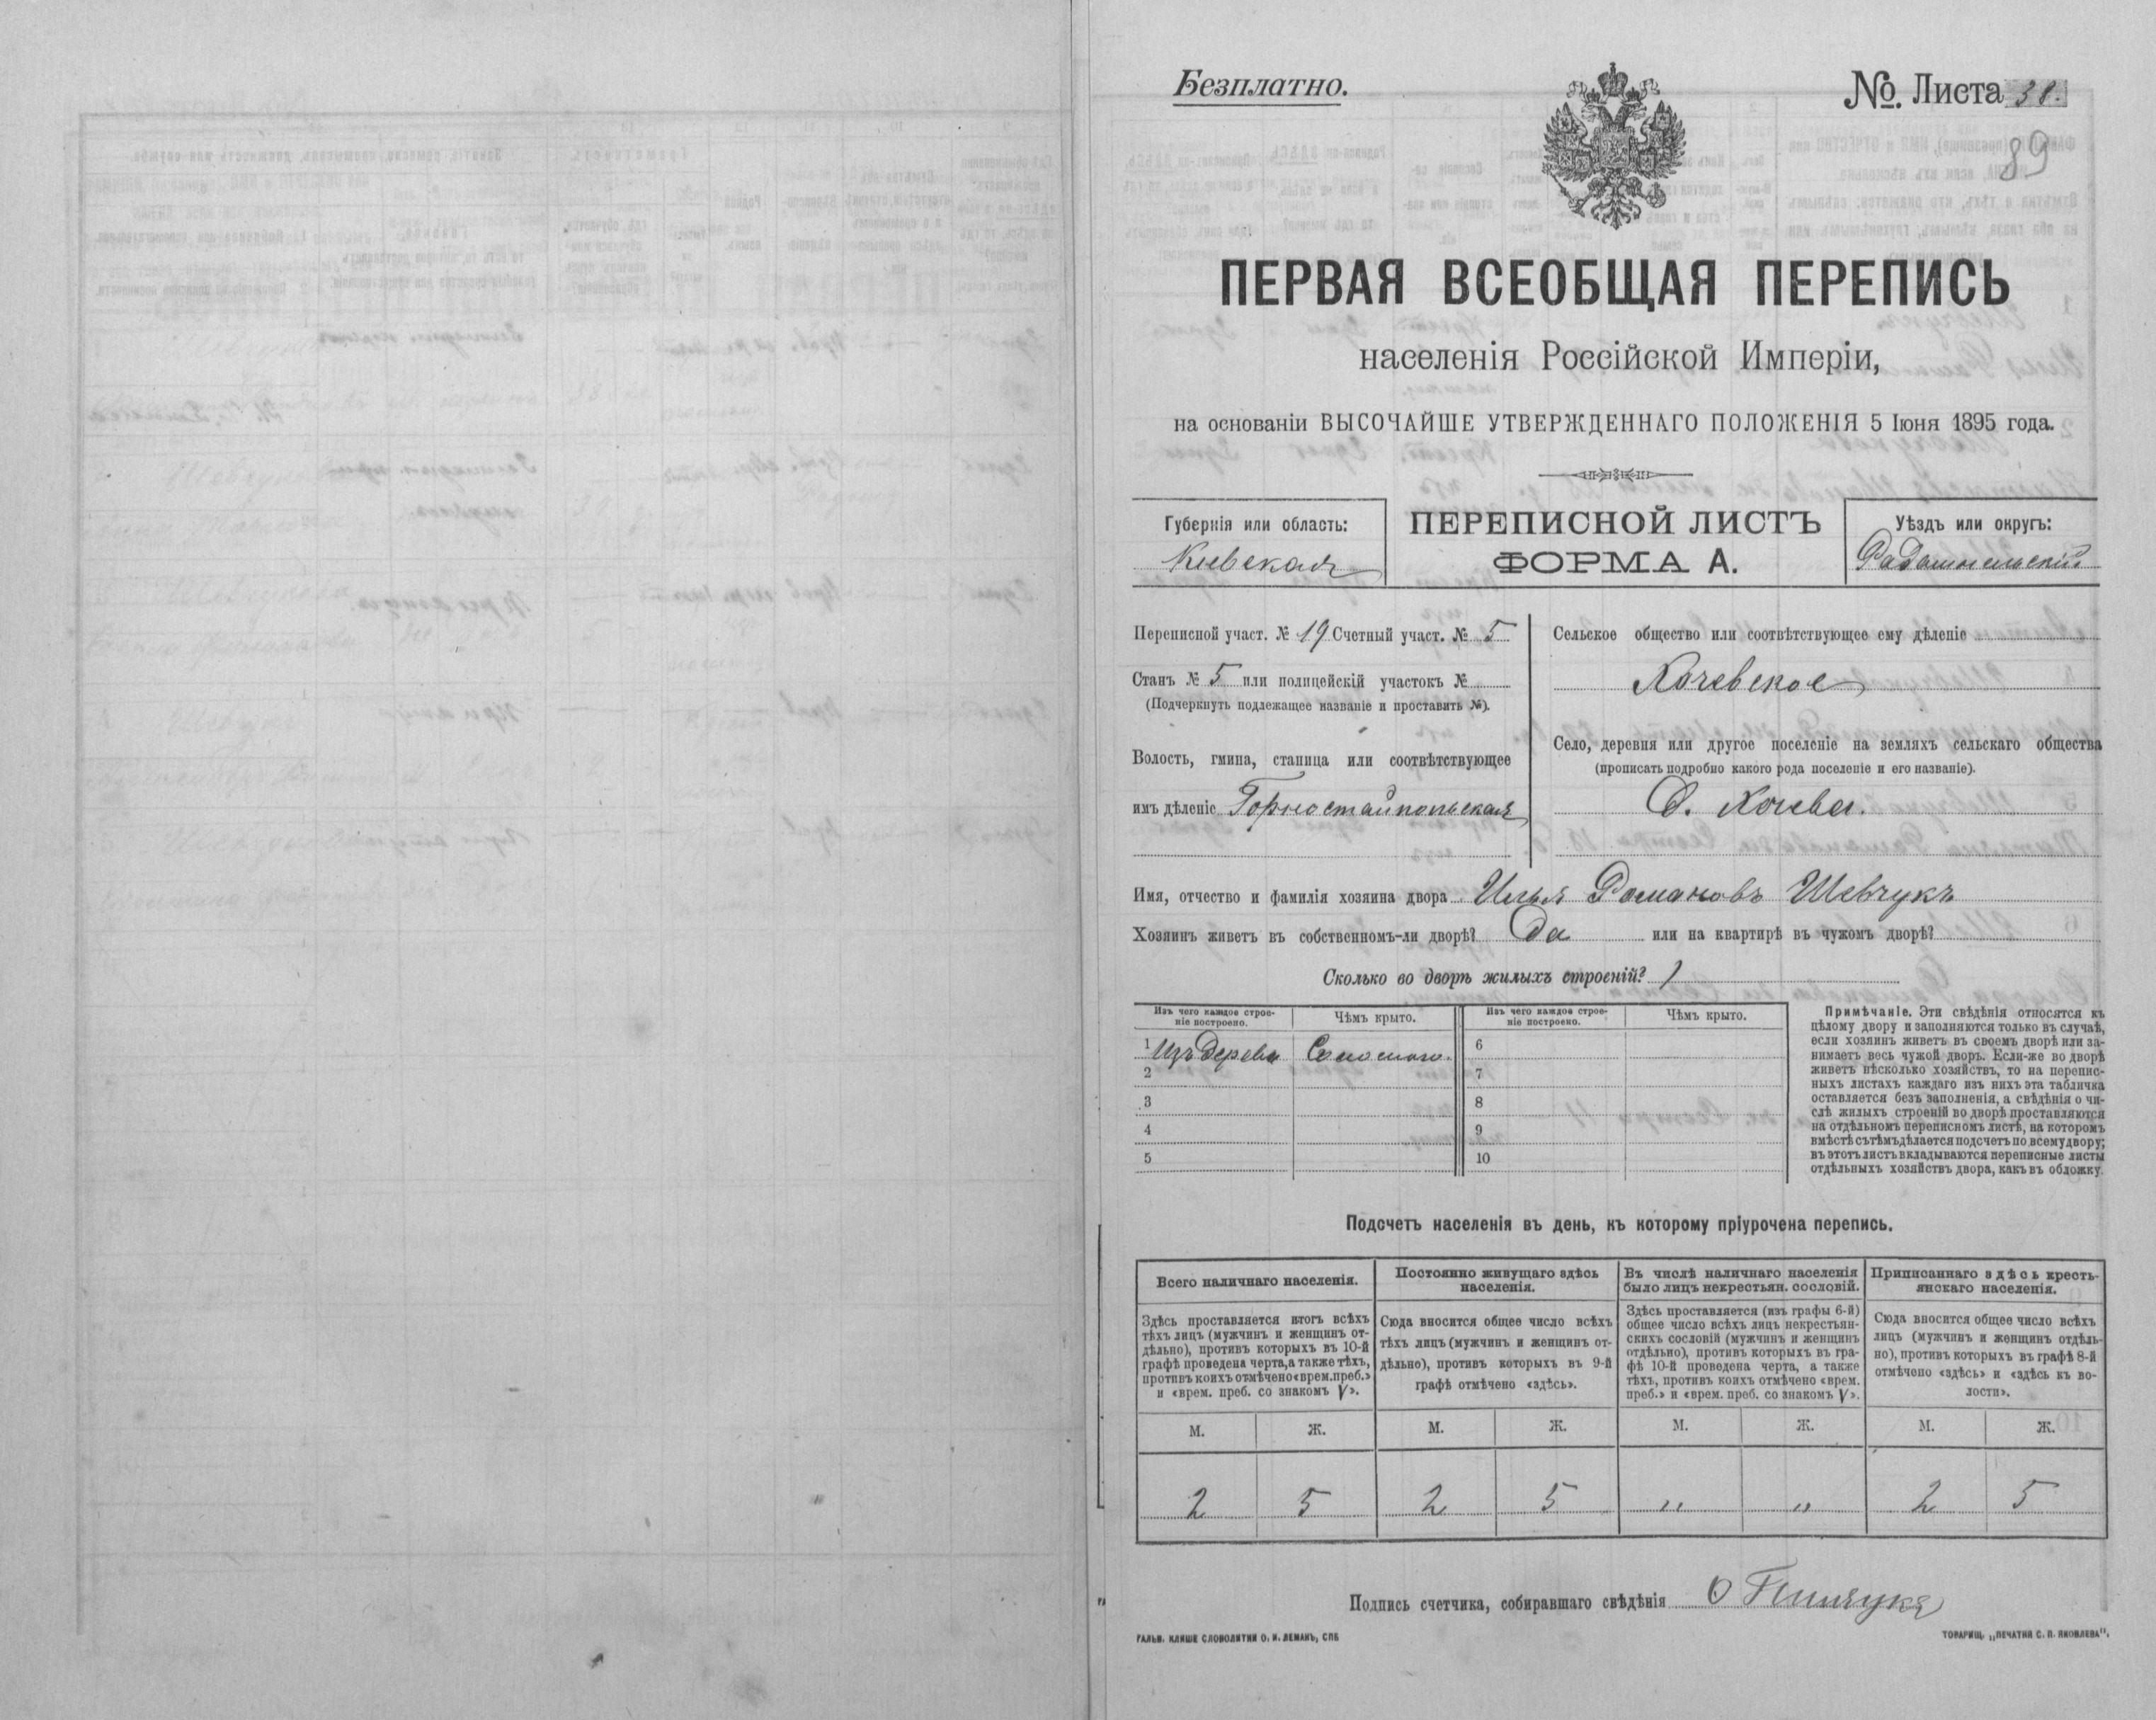 Безплатно.
№. Листа 38.
89
ПЕРВАЯ ВСЕОБЩАЯ ПЕРЕПИСЬ
населенія Россійской Имперіи,
на основаніи ВЫСОЧАЙШЕ УТВЕРЖДЕННАГО ПОЛОЖЕНІЯ 5 Іюня 1895 года.
Губернія или область:
Кіевская
ПЕРЕПИСНОЙ ЛИСТЪ
ФОРМА А.
Уѣздъ или округъ:
Радомысльскій
Переписной участ. № 19 Счетный участ. № 5
Станъ № 5 или полицейскій участокъ №
(Подчеркнуть подлежащее названіе и проставить №).
Волость, гмина, станица или соотвѣтствующее
имъ дѣленіе Горностайпольская
Сельское общество или соотвѣтствующее ему дѣленіе
Хочевское
Село, деревня или другое поселеніе на земляхъ сельскаго общества
(прописать подробно какого рода поселеніе и его названіе).
д. Хочева.
Имя, отчество и фамилія хозяина двора Илья Романовъ Шевчукъ
Хозяинъ живетъ въ собственномъ-ли дворѣ? Да или на квартирѣ въ чужомъ дворѣ?
Сколько во дворѣ жилыхъ строеній? 1
Изъ чего каждое строе-
ніе построено.
Чѣмъ крыто.
Изъ чего каждое строе-
ніе построено.
Чѣмъ крыто.
1 Изъ дерева Соломою. 6
2 7
3 8
4 9
5 10
Примѣчаніе. Эти свѣдѣнія относятся къ
цѣлому двору и заполняются только въ случаѣ,
если хозяинъ живетъ въ своемъ дворѣ или за-
нимаетъ весь чужой дворъ. Если-же во дворѣ
живетъ нѣсколько хозяйствъ, то на перепис-
ныхъ листахъ каждаго изъ нихъ эта табличка
оставляется безъ заполненія, а свѣдѣнія о чи-
слѣ жилыхъ строеній во дворѣ проставляются
на отдѣльномъ переписномъ листѣ, на которомъ
вмѣстѣ съ тѣмъ дѣлается подсчетъ по всему двору;
въ этотъ листъ вкладываются переписные листы
отдѣльныхъ хозяйствъ двора, какъ въ обложку.
Подсчетъ населенія въ день, къ которому пріурочена перепись.
Всего наличнаго населенія.
Здѣсь проставляется итогъ всѣхъ
тѣхъ лицъ (мужчинъ и женщинъ от-
дѣльно), противъ которыхъ въ 10-й
графѣ проведена черта, а также тѣхъ,
противъ коихъ отмѣчено «врем. преб.»
и «врем. преб. со знакомъ V».
Постоянно живущаго здѣсь
населенія.
Сюда вносится общее число всѣхъ
тѣхъ лицъ (мужчинъ и женщинъ от-
дѣльно), противъ которыхъ въ 9-й
графѣ отмѣчено «здѣсь».
Въ числѣ наличнаго населенія
было лицъ некрестьян. сословій.
Здѣсь проставляется (изъ графы 6-й)
общее число всѣхъ лицъ некрестьян-
скихъ сословій (мужчинъ и женщинъ
отдѣльно), противъ которыхъ въ гра-
фѣ 10-й проведена черта, а также
тѣхъ, противъ коихъ отмѣчено «врем.
преб.» и «врем. преб. со знакомъ V».
Приписаннаго здѣсь кресть-
янскаго населенія.
Сюда вносится общее число всѣхъ
лицъ (мужчинъ и женщинъ отдѣль-
но), противъ которыхъ въ графѣ 8-й
отмѣчено «здѣсь» и «здѣсь къ во-
лости».
М. Ж. М. Ж. М. Ж. М. Ж.
2 5 2 5 " " 2 5
Подпись счетчика, собиравшаго свѣдѣнія
ГАЛЬВ. КЛИШЕ СЛОВОЛИТНИ О. И. ЛЕМАНЪ, СПБ
ТОВАРИЩ. „ПЕЧАТНЯ С. П. ЯКОВЛЕВА".